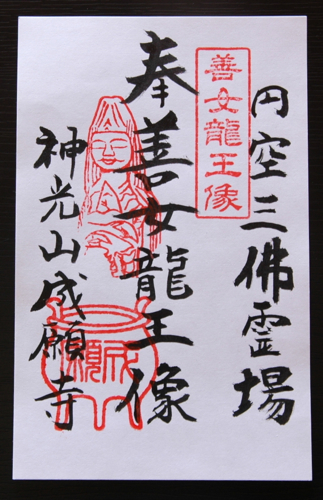 円空三佛霊場
善女龍王像
奉善女龍王像
神光山成願寺
成願